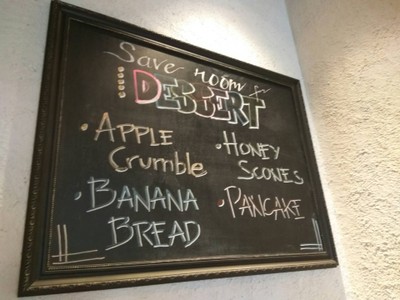 Save room for
DESSERT
• APPLE Crumble
• HONEY SCONES
• BANANA BREAD
• PANCAKE